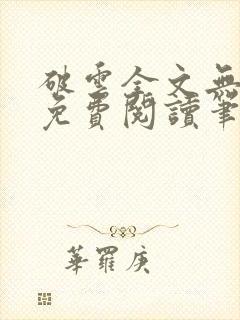 破雲全文無
免費閱讀筆
華羅庚